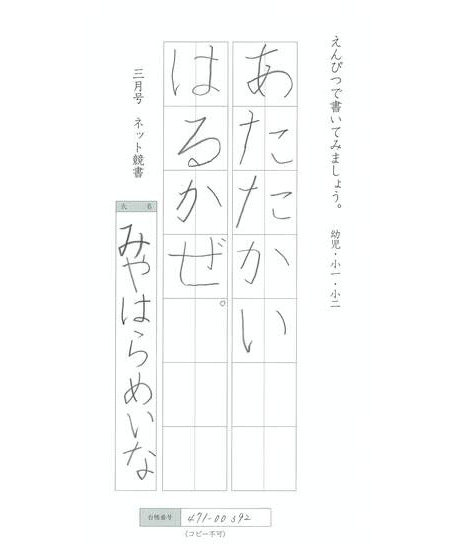 えんぴつで書いてみましょう。
幼児・小一・小二
あたたかい
はるかぜ。
三月号 ネット競書
氏名
みやはらめいな
台帳番号 471-00592
(コピー不可)